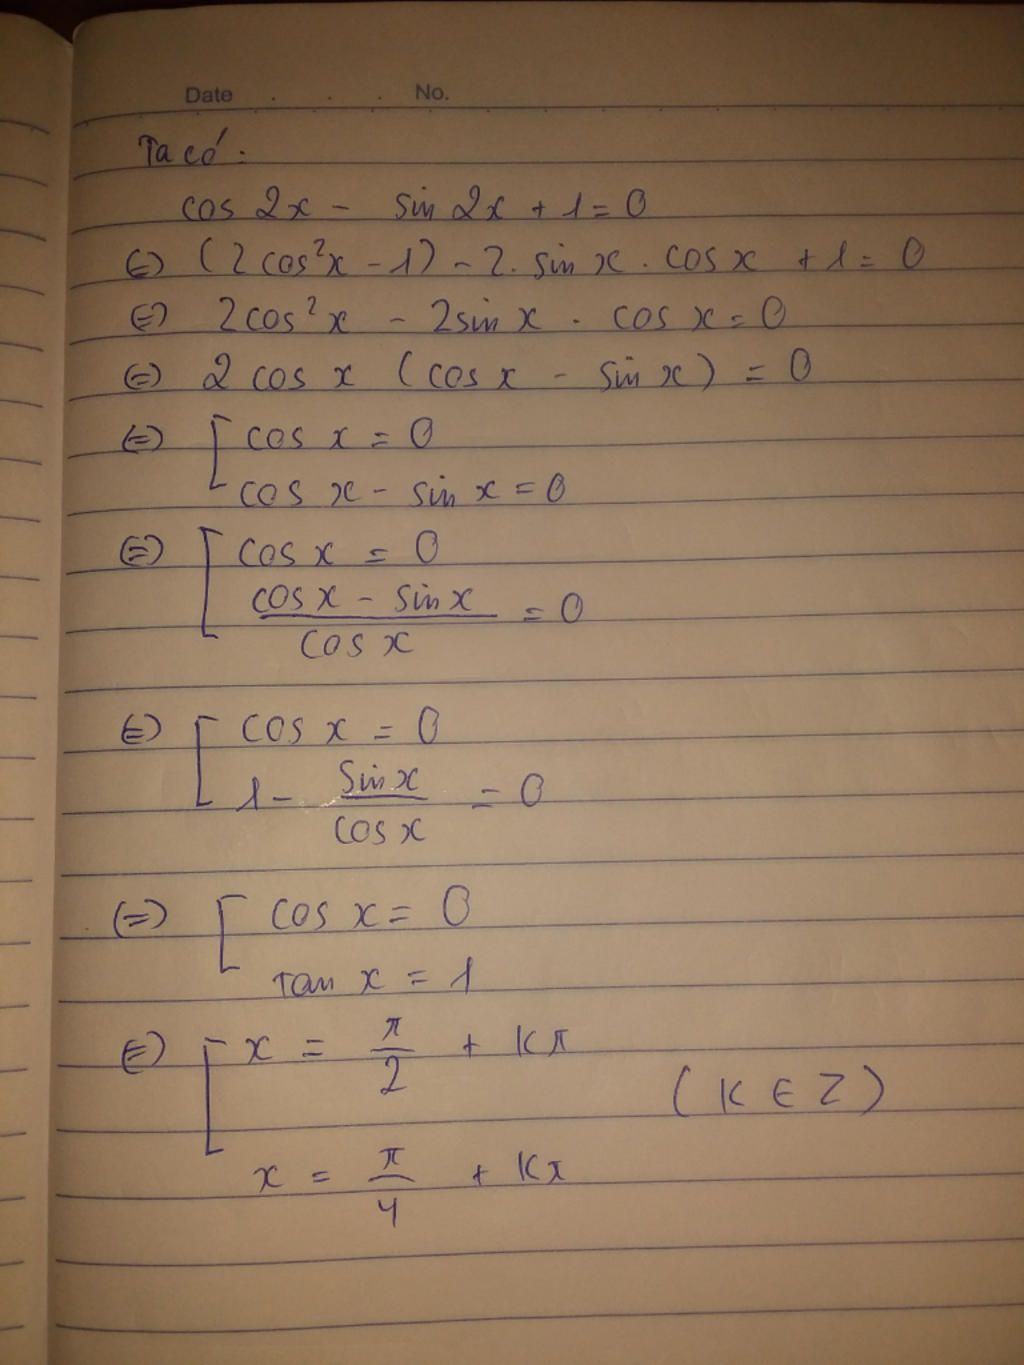 Date . . . . No.
Ta có:
cos 2x - sin 2x + 1 = 0
(=) (2cos²x - 1) - 2. sin x . cos x + 1 = 0
(=) 2cos²x - 2sin x . cos x = 0
(=) 2 cos x (cos x - sin x) = 0
(=) [ cos x = 0
cos x - sin x = 0
(=) [ cos x = 0
cos x - sin x / cos x = 0
(=) [ cos x = 0
1 - sin x / cos x = 0
(=) [ cos x = 0
tan x = 1
(=) [ x = π/2 + kπ
(k ∈ Z)
x = π/4 + kπ